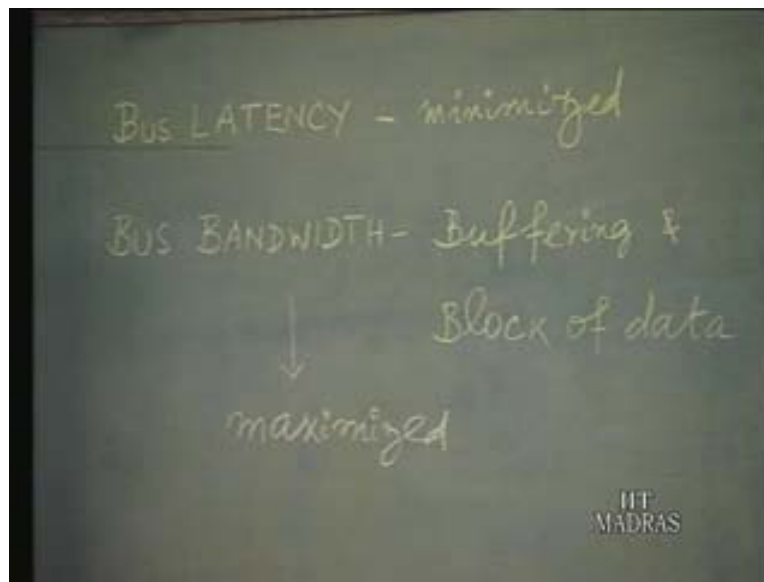 BUS LATENCY - minimized
BUS BANDWIDTH - Buffering &
Block of data
maximized
IIT
MADRAS